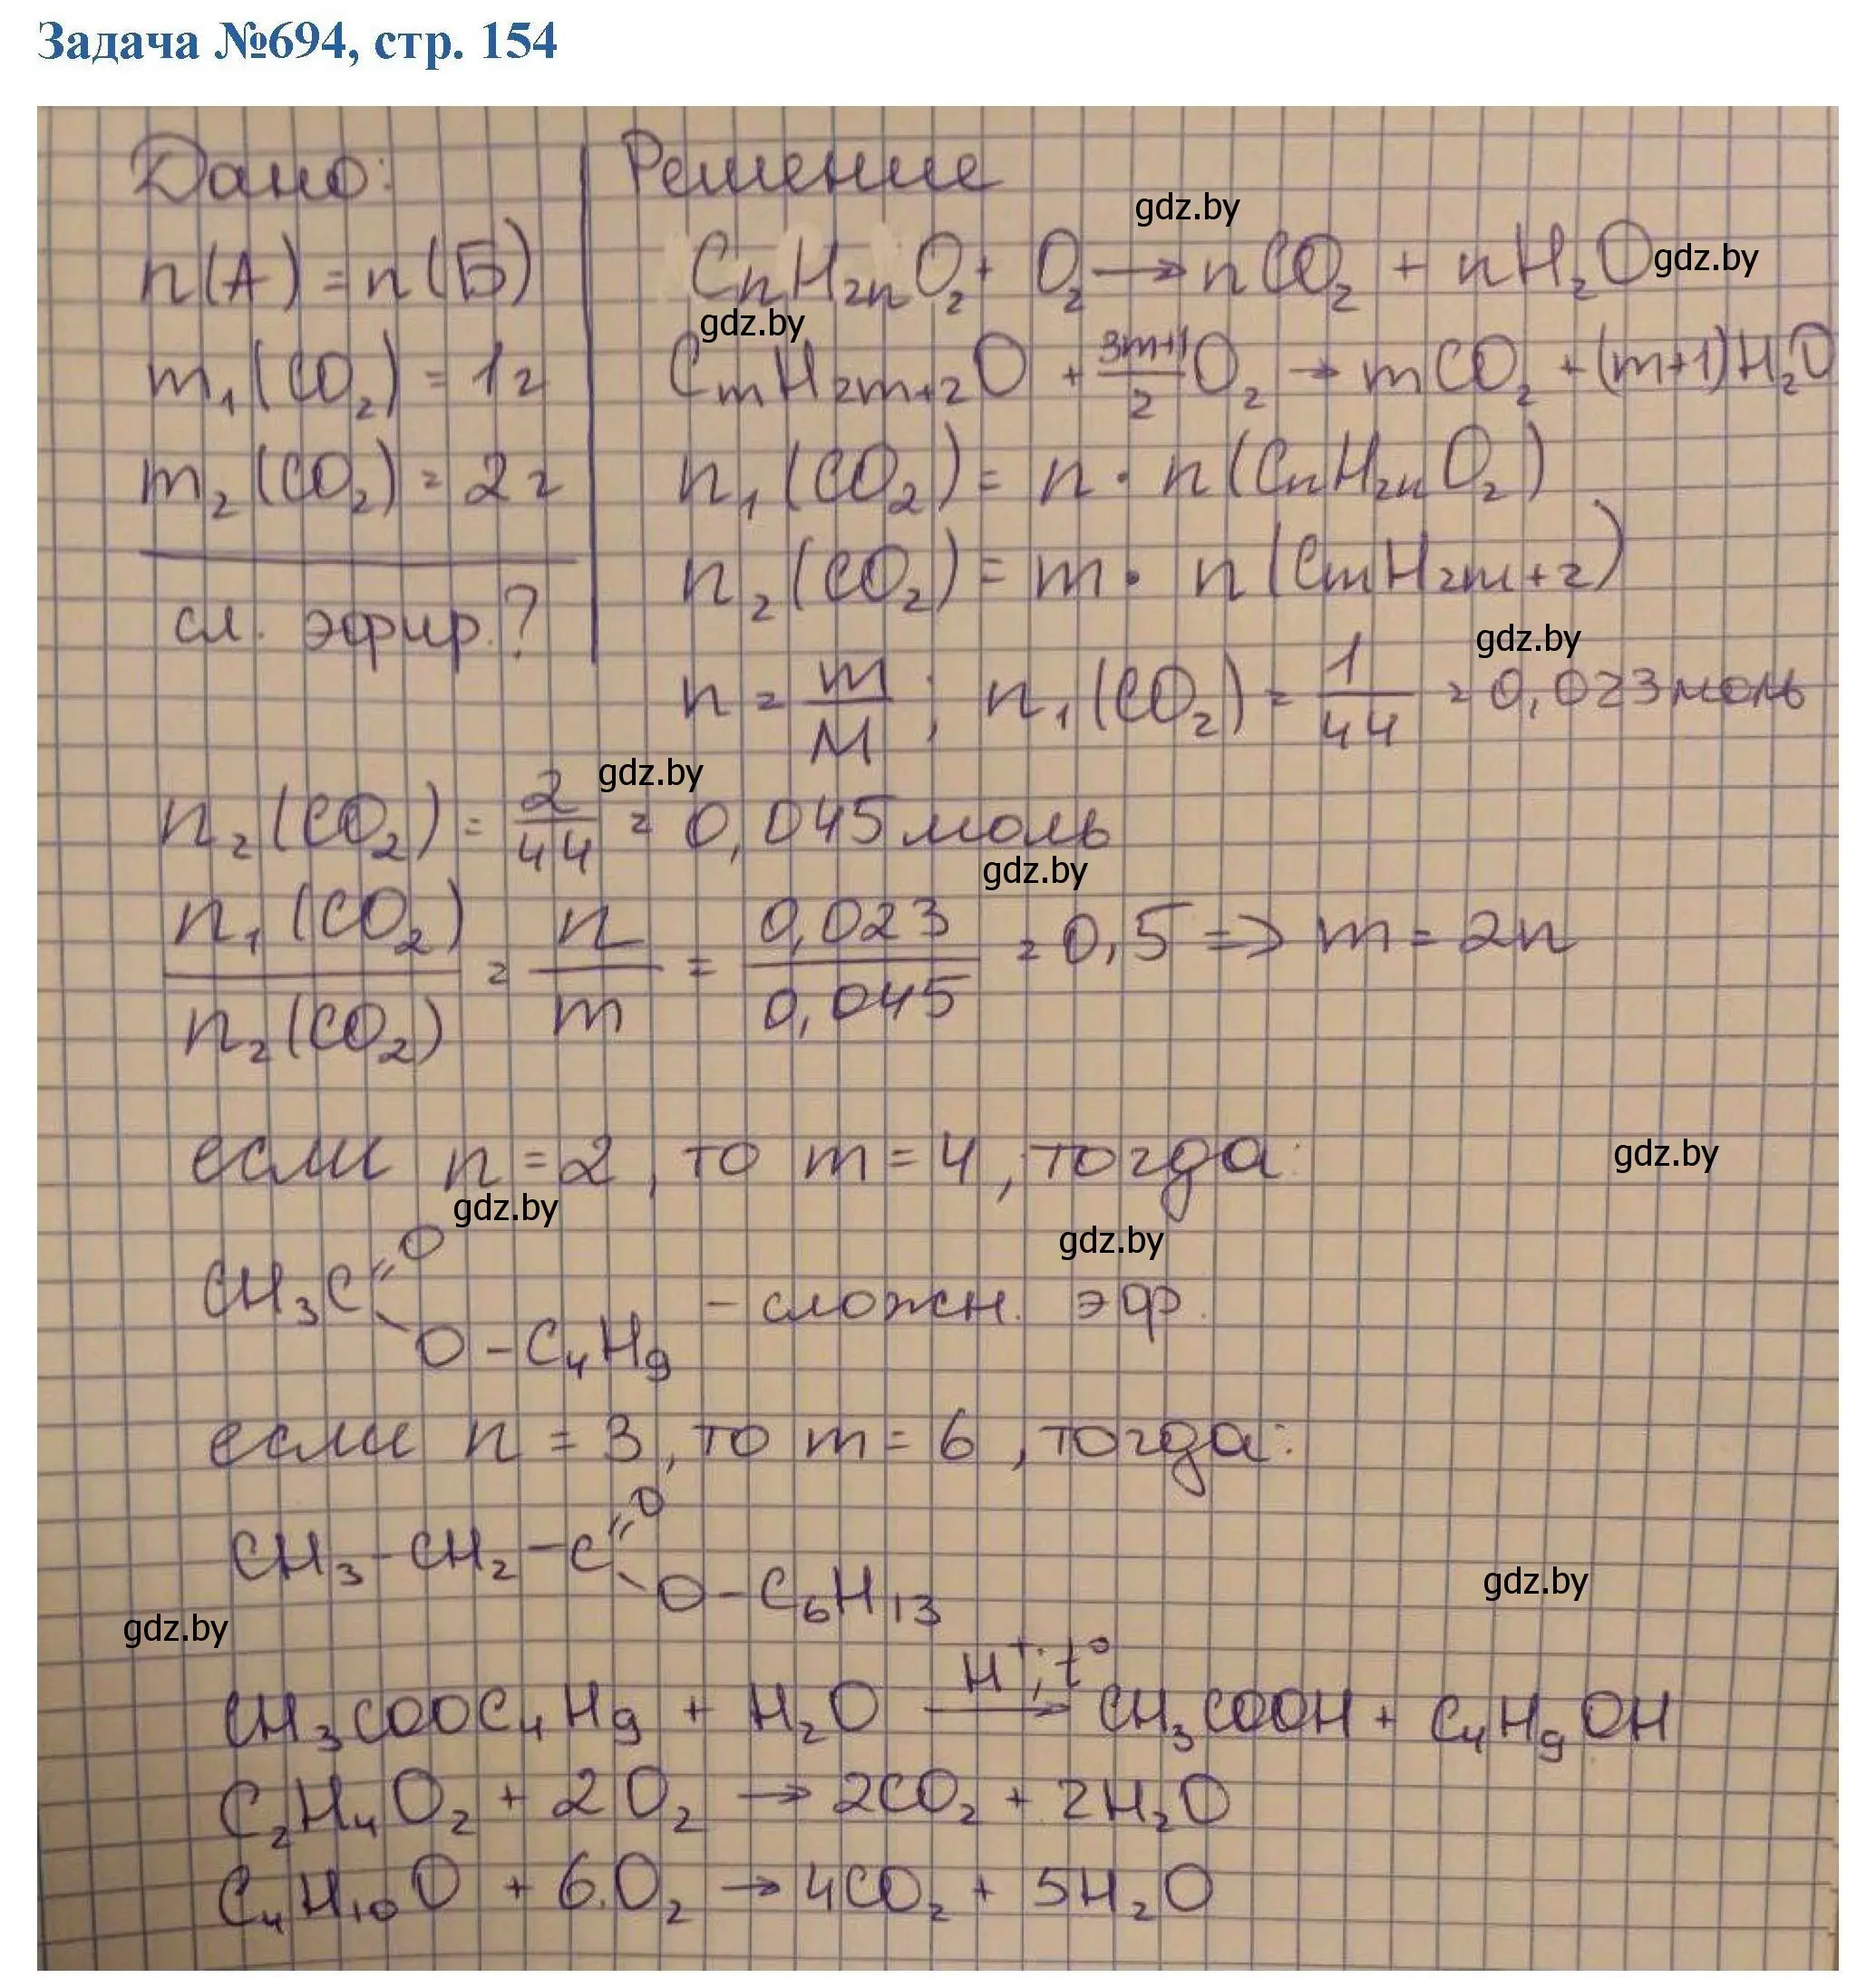 Задача №694, стр. 154
Дано:
Решение
gdz.by
n(А) = n(Б)
CnH2nO2 + O2 → nCO2 + nH2O
gdz.by
gdz.by
m1(CO2) = 1г
CmH2m+2O + 3m+1/2 O2 → mCO2 + (m+1)H2O
m2(CO2) = 2г
n1(CO2) = n · n(CnH2nO2)
n2(CO2) = m · n(CmH2m+2)
сл. эфир.?
gdz.by
n = m/M ; n1(CO2) = 1/44 = 0,023моль
gdz.by
n2(CO2) = 2/44 = 0,045моль
gdz.by
n1(CO2)/n2(CO2) = n/m = 0,023/0,045 = 0,5 => m = 2n
если n = 2, то m = 4, тогда:
gdz.by
gdz.by
gdz.by
CH3C=O
O-C4H9 - сложн. эфр.
если n = 3, то m = 6, тогда:
CH3-CH2-C=O
O-C6H13
gdz.by
gdz.by
CH3COOC4H9 + H2O H+; t° → CH3COOH + C4H9OH
C2H4O2 + 2O2 → 2CO2 + 2H2O
C4H10O + 6.O2 → 4CO2 + 5H2O